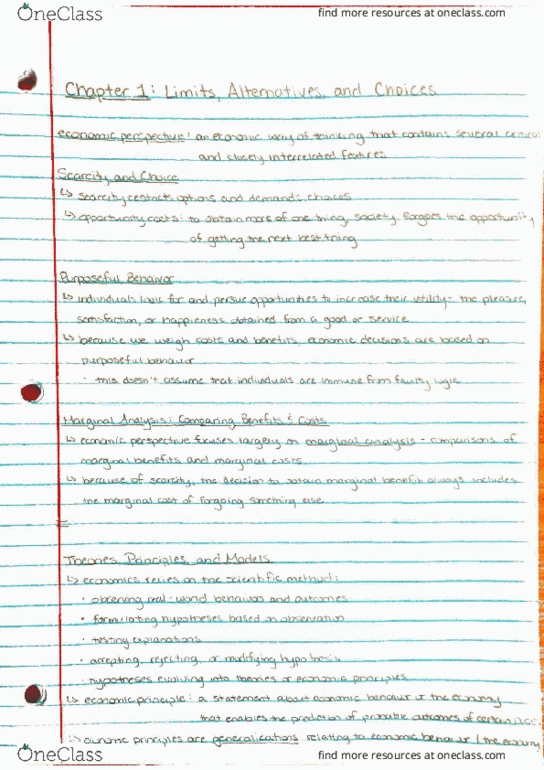 OneClass
find more resources at oneclass.com
Chapter 1: Limits, Alternatives, and Choices
economic perspective: an economic way of thinking that contains several critical
and closely interrelated features
Scarcity and Choice
↳ scarcity restricts options and demands choices
↳ opportunity costs: to obtain more of one thing, society forgoes the opportunity
of getting the next best thing
Purposeful Behavior
↳ individuals look for and persue opportunities to increase their utility - the pleasure,
satisfaction, or happieness obtained from a good or service
↳ because we weigh costs and benefits, economic decisions are based on
purposeful behavior
· this doesn't assume that individuals are immune from faulty logic
Marginal Analysis: Comparing Benefits & Costs
↳ economic perspective focuses largely on marginal analysis - comparisons of
marginal benefits and marginal costs
↳ because of scarcity, the decision to obtain marginal benefit always includes
the marginal cost of forgoing something else
Theories, Principles, and Models
↳ economics relies on the scientific method:
· observing real-world behaviors and outcomes
· formulating hypotheses based on observation
· testing explanations
· accepting, rejecting, or modifying hypothesis
· hypotheses evolving into theories or economic principles
↳ economic principle: a statement about economic behavior or the economy
that enables the prediction of probable outcomes of certain
principles are generalizations relating to economic behavior / the economy
OneClass
find more resources at oneclass.com